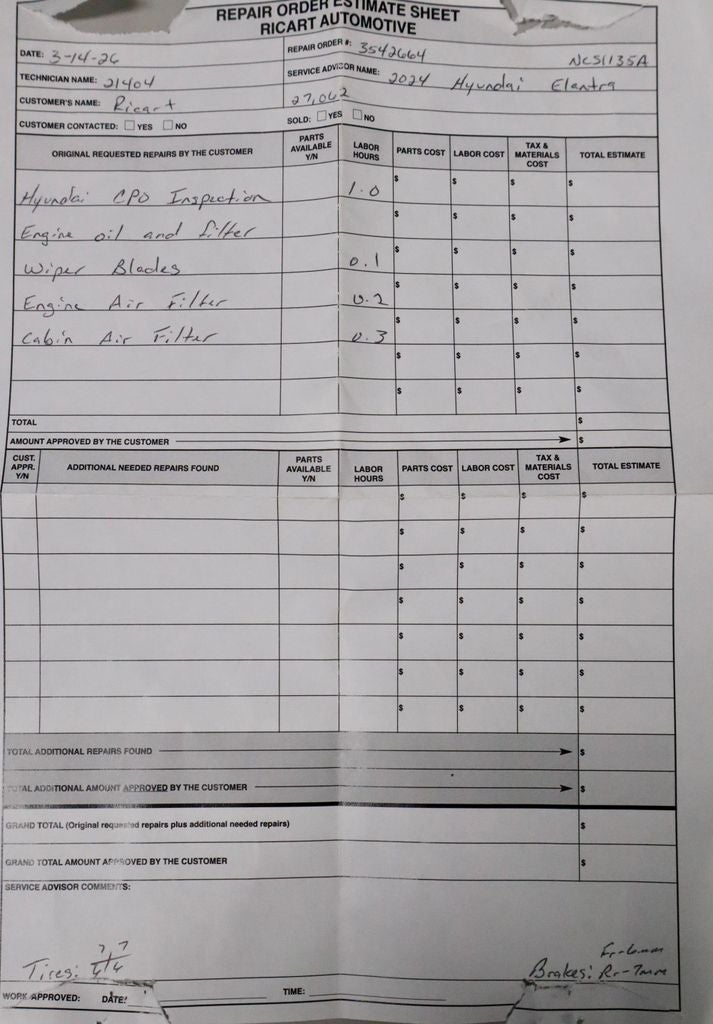 REPAIR ORDER ESTIMATE SHEET
RICART AUTOMOTIVE
DATE: 3-14-26 REPAIR ORDER #: 3542664 NCS1135A
TECHNICIAN NAME: 21404 SERVICE ADVISOR NAME: 2024 Hyundai Elantra
CUSTOMER'S NAME: Ricart 27,062
CUSTOMER CONTACTED: ☐ YES ☐ NO SOLD: ☐ YES ☐ NO
ORIGINAL REQUESTED REPAIRS BY THE CUSTOMER PARTS AVAILABLE Y/N LABOR HOURS PARTS COST LABOR COST TAX & MATERIALS COST TOTAL ESTIMATE
Hyundai CPO Inspection 1.0 $ $ $ $
Engine oil and filter $ $ $ $
Wiper Blades 0.1 $ $ $ $
Engine Air Filter 0.2 $ $ $ $
Cabin Air Filter 0.3 $ $ $ $
$ $ $ $
$ $ $ $
TOTAL $
AMOUNT APPROVED BY THE CUSTOMER $
CUST. APPR. Y/N ADDITIONAL NEEDED REPAIRS FOUND PARTS AVAILABLE Y/N LABOR HOURS PARTS COST LABOR COST TAX & MATERIALS COST TOTAL ESTIMATE
$ $ $ $
$ $ $ $
$ $ $ $
$ $ $ $
$ $ $ $
$ $ $ $
$ $ $ $
TOTAL ADDITIONAL REPAIRS FOUND $
TOTAL ADDITIONAL AMOUNT APPROVED BY THE CUSTOMER $
GRAND TOTAL (Original requested repairs plus additional needed repairs) $
GRAND TOTAL AMOUNT APPROVED BY THE CUSTOMER $
SERVICE ADVISOR COMMENTS:
7 7 Fr-6mm
Tires: 4 4 Brakes: Rr-7mm
WORK APPROVED: DATE: TIME: